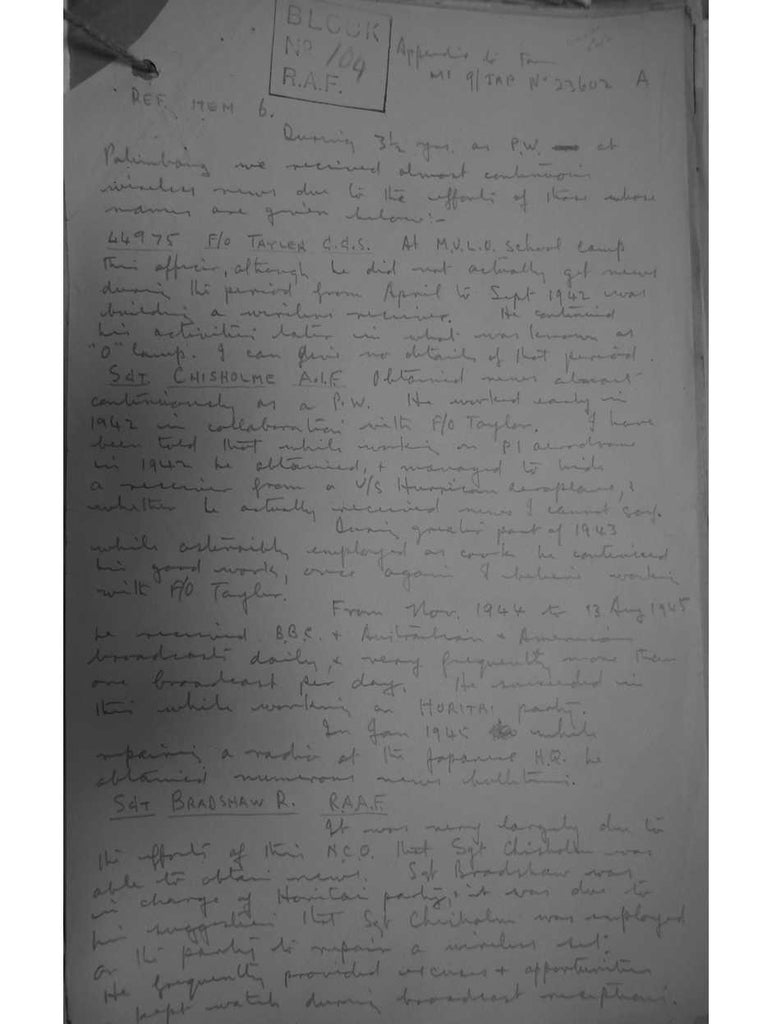 BLOCK
No 104
R.A.F.
Appendix to Form
MI 9/JAP No 23602 A
REF. ITEM 6.
During 3½ yrs. as P.W. at
Palembang we received almost continuous
wireless news due to the efforts of those whose
names are given below:-
44975 F/O TAYLER C.G.S. At M.U.L.O. School camp
this officer, although he did not actually get news
during the period from April to Sept 1942 was
building a wireless receiver. He continued
his activities later in what was known as
"O" Camp. I can give no details of that period.
Sgt. CHISHOLME A.I.F. Obtained news almost
continuously as a P.W. He worked early in
1942 in collaboration with F/O Taylor. I have
been told that while working on P1 aerodrome
in 1942 he obtained, & managed to hide
a receiver from a U/S Hurricane aeroplane,
whether he actually received news I cannot say.
During greater part of 1943
while ostensibly employed as cook he continued
his good work, once again I believe working
with F/O Taylor.
From Nov. 1944 to 13 Aug 1945
he received B.B.C. & Australian & American
broadcasts daily, & very frequently more than
one broadcast per day. He succeeded in
this while working on HORITAI party.
In Jan 1945 while
repairing a radio at the Japanese H.Q. he
obtained numerous news bulletins.
Sgt BRADSHAW R. R.A.A.F.
It was very largely due to
the efforts of this N.C.O. that Sgt Chisholm was
able to obtain news. Sgt Bradshaw was
in charge of Horitai party, & it was due to
his suggestion that Sgt Chisholm was employed
on the party to repair a wireless set.
He frequently provided excuses & opportunities
kept watch during broadcast receptions.